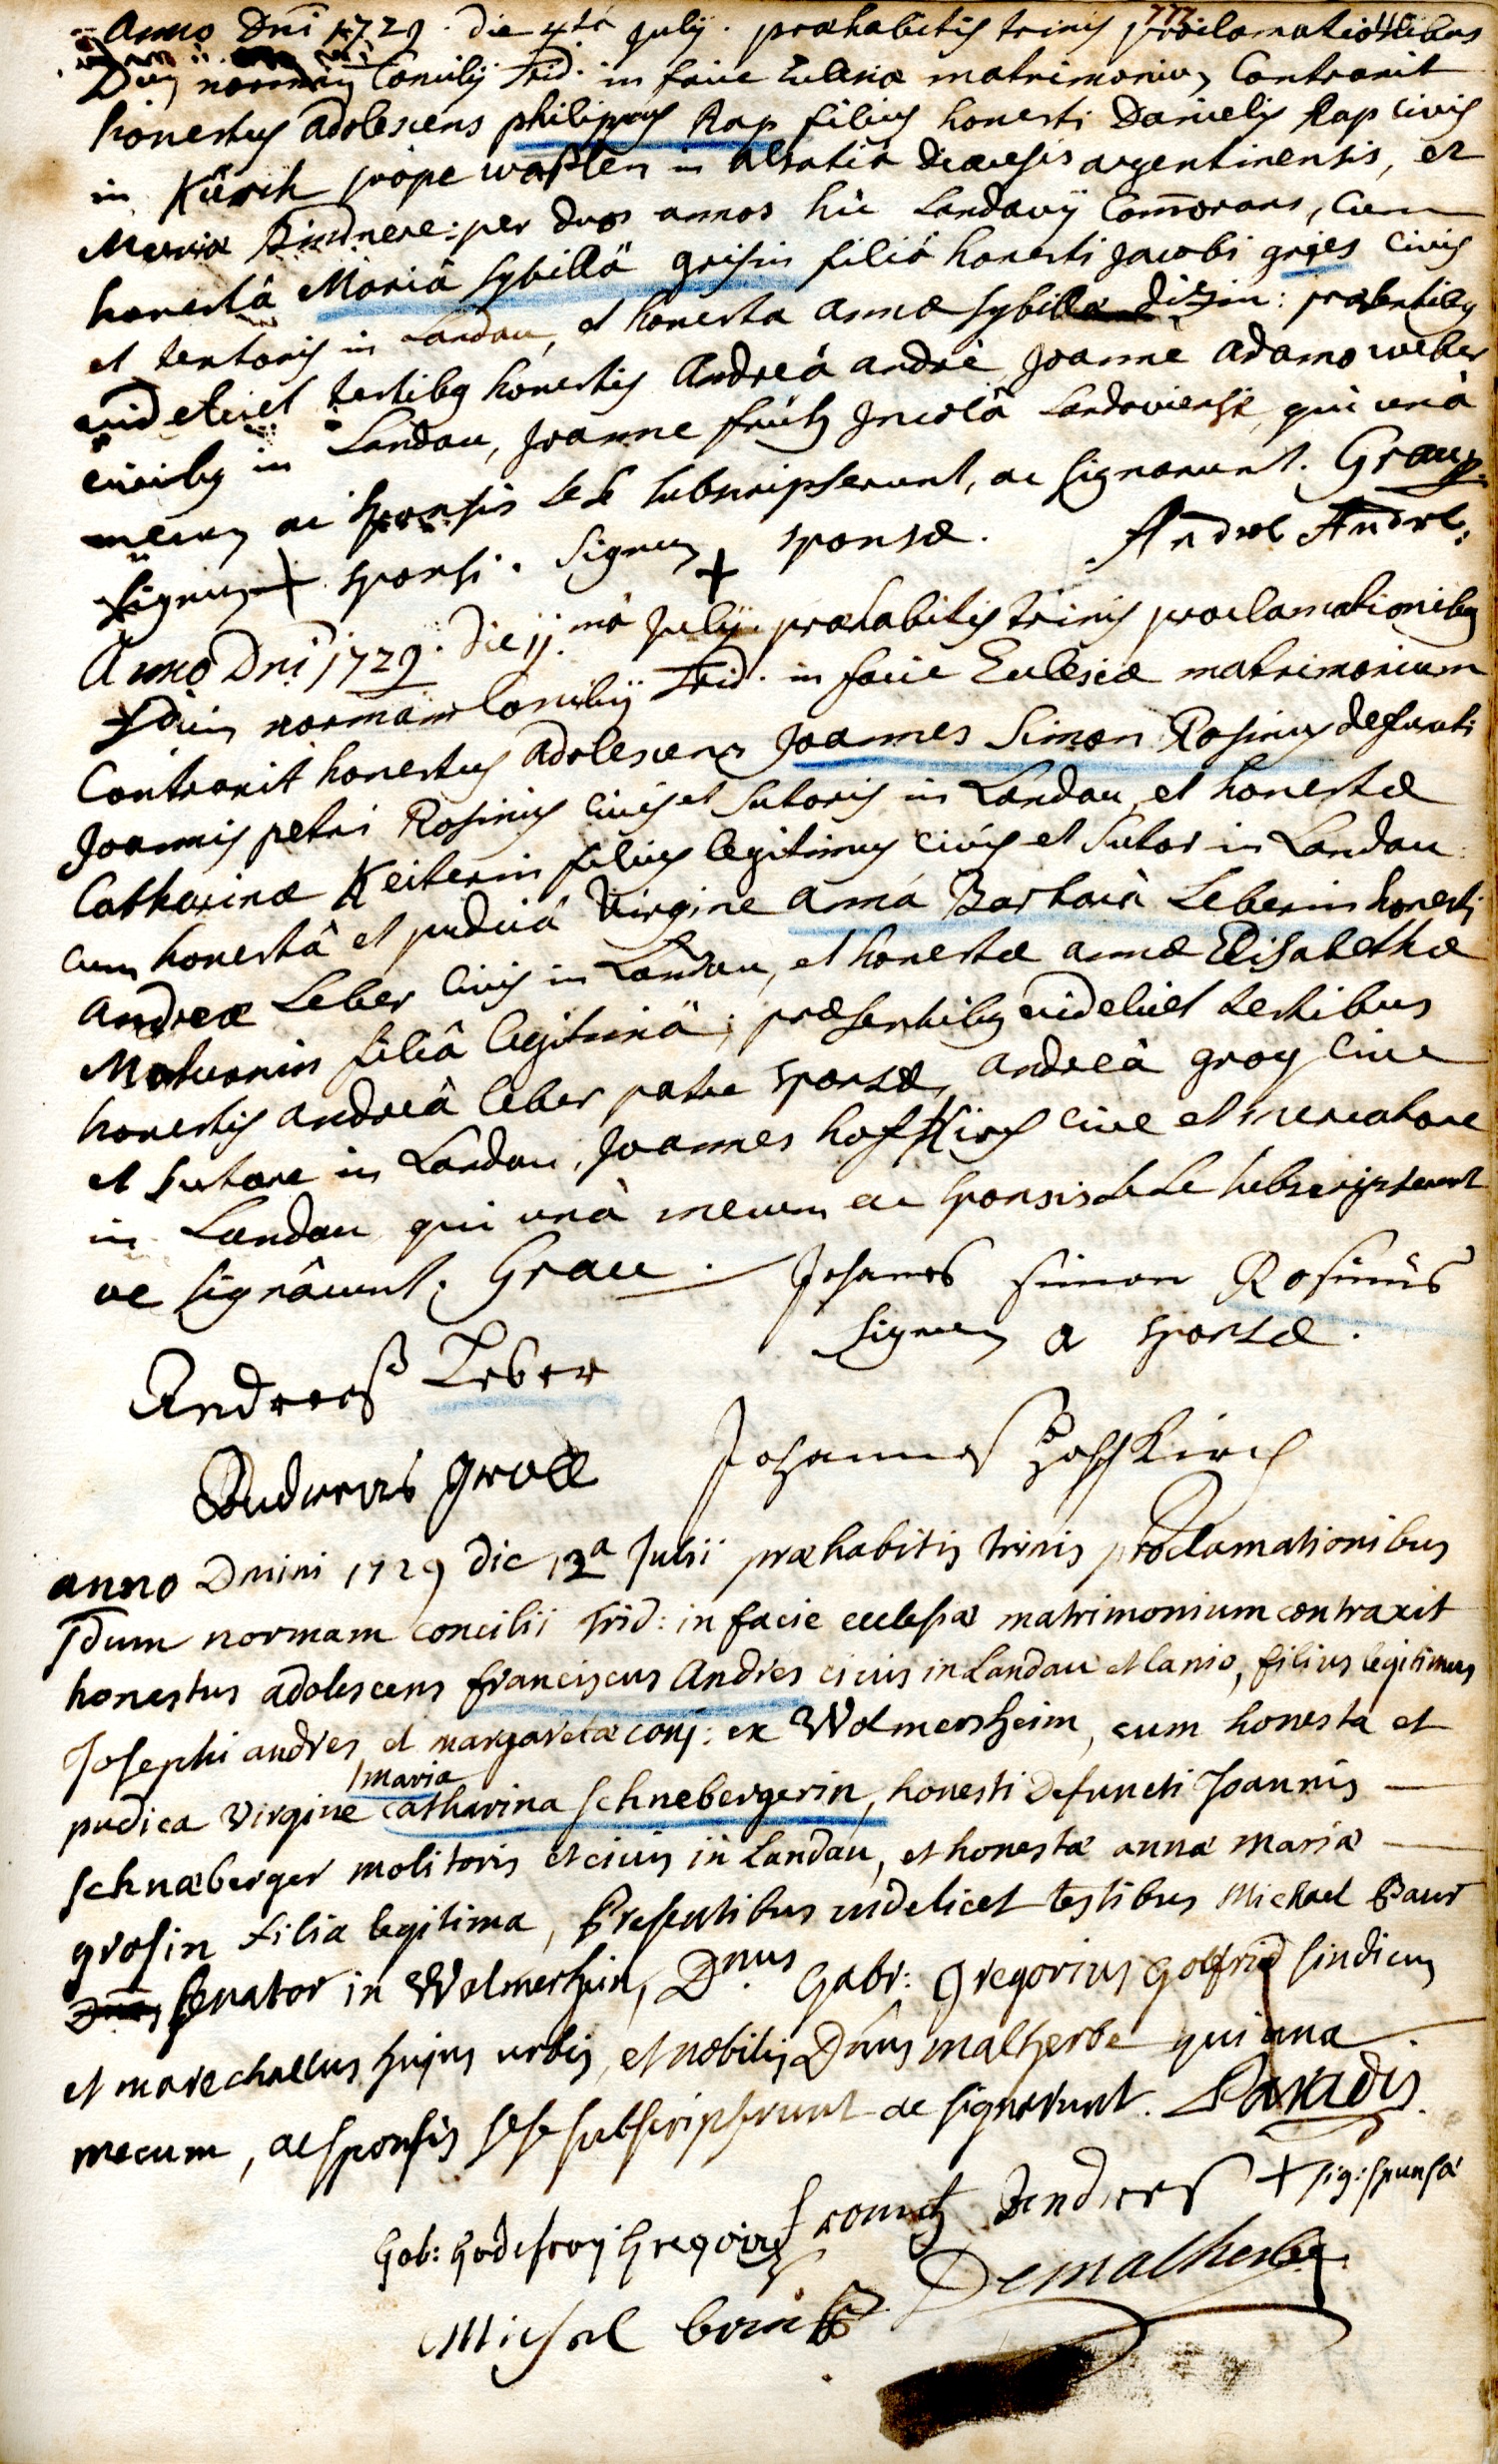 777
Anno Dnī 1729. die 4tâ July. præhabitis trinis proclamationibus
Sdum normam Concilij Trid. in facie Ecclesiæ matrimonium Contraxit
honestus adolescens philippus Rap filius honesti Danielis Rap civis
in Kürch prope waßlen in alsatiâ diœcesis argentinensis, et
Mariæ : per duos annos hic Landavij Com̄orans, cum
honestâ Mariâ Sybillâ grisin filiâ honesti Jacobi gries civis
et textoris in Landau, et honestæ annæ sybillæ : præsentibus
videlicet testibus honestis Andreâ andre Joanne adamo weber
civibus in Landau, Joanne Incolâ Landaviense, qui unâ
mecum ac sponsis sese subscripserunt, ac signarunt. Grau
Signum + sponsi. Signum + sponsæ. Andre Andre,
Anno Dnī 1729. die 11.mâ July præhabitis trinis proclamationibus
Sdum normam Concilij Trid. in facie Ecclesiæ matrimonium
Contraxit honestus adolescens Joannes Simon Rosinus defuncti
Joannis petri Rosinus civis et sutoris in Landau, et honestæ
Catharinæ Keiterin filius legitimus civis et sutor in Landau
cum honestâ et pudicâ virgine annâ Barbarâ Leberin honesti
andreæ Leber civis in Landau, et honestæ annæ Elisabethæ
filiâ legitimâ; præsentibus videlicet testibus
honestis andreâ leber patre sponsæ, andreâ groy cive
et sutore in Landau, Joannes hoffkirch cive et mercatore
in Landau qui unâ mecum ac sponsis sese subscripserunt
ac signârunt. Grau. Johanes simon Rosinus
Signum a sponsæ.
Andreas Leber
Andreas groll Johannes Hoffkirch
anno Dmini 1729 die 12a Julii præhabitis trinis proclamationibus
sdum normam concilii Trid: in facie ecclesiæ matrimonium contraxit
honestus adolescens franciscus Andres civis in Landau et lanio, filius legitimus
Josephi andres et margaretæ conj: ex Wolmersheim, cum honesta et
maria
pudica virgine catharina schnebergerin, honesti defuncti Joannis
schnæberger molitoris et civis in Landau, et honestæ annæ mariæ
grosin filia legitima, Presentibus videlicet testibus Michael Baur
senator in Wolmersheim, Dnus Gabr: Gregorius Golfrid sindicus
et marechallus hujus urbis, et nobilis Dnus malherbe qui una
mecum, ac sponsis sese subscripserunt ac signarunt. Paradis.
frantz Andres + sig: sponsæ
Gab: Godefroy Gregoire
Demalherbe
Michel